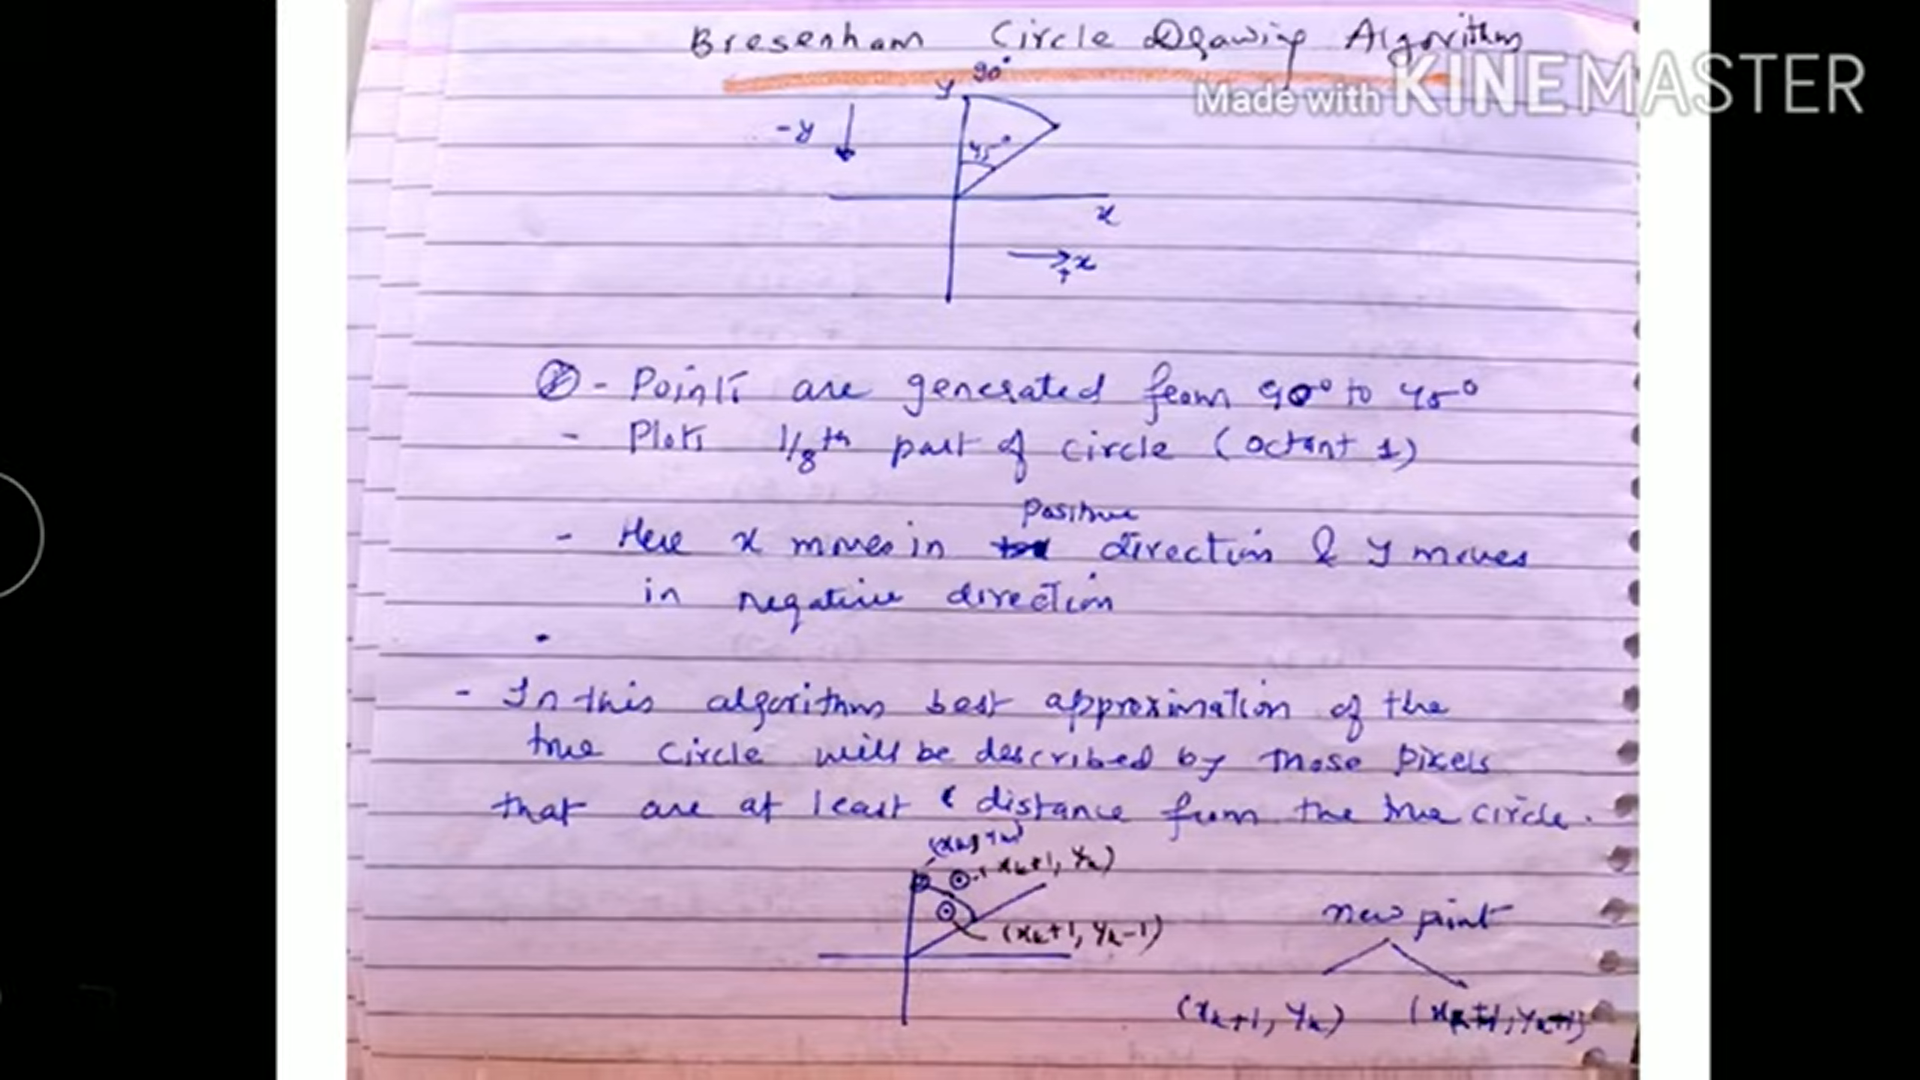 Bresenham Circle Drawing Algorithm
Made with KINEMASTER
y 90°
-y
45°
x
+x
- Points are generated from 90° to 45°
- Plots 1/8th part of circle (octant 1)
positive
- Here x moves in direction & y moves
in negative direction
- In this algorithm best approximation of the
true circle will be described by those pixels
that are at least distance from the true circle.
(xk, yk)
(xk+1, yk)
(xk+1, yk-1)
new point
(xk+1, yk)